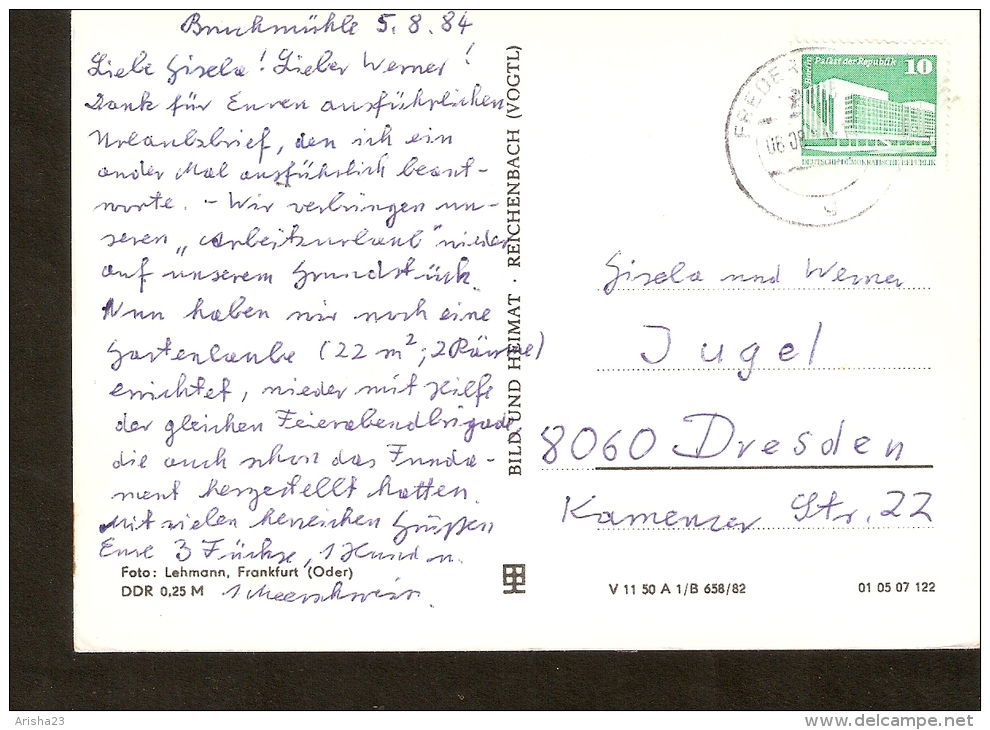 Bruchmühle 5.8.84
Liebe Gisela! Lieber Werner!
Dank für Euren ausführlichen
Urlaubsbrief, den ich ein
ander Mal ausführlich beant-
worte. - Wir verbringen un-
seren „Arbeitsurlaub" wieder
auf unserem Grundstück.
Nun haben wir noch eine
Gartenlaube (22 m²; 2 Räume)
errichtet, wieder mit Hilfe
der gleichen Feierabendbrigade
die auch schon das Funda-
ment hergestellt hatten.
Mit vielen herzlichen Grüßen
Eure 3 Füchse, 1 Hund u.
1 Meerschwein.
Foto: Lehmann, Frankfurt (Oder)
DDR 0,25 M
BILD UND HEIMAT · REICHENBACH (VOGTL)
Berlin Palast der Republik 10
DEUTSCHE DEMOKRATISCHE REPUBLIK
FREDE
06.08
g
Gisela und Werner
Jugel
8060 Dresden
Kamenzer Str. 22
V 11 50 A 1/B 658/82
01 05 07 122
Arisha23
www.delcampe.net